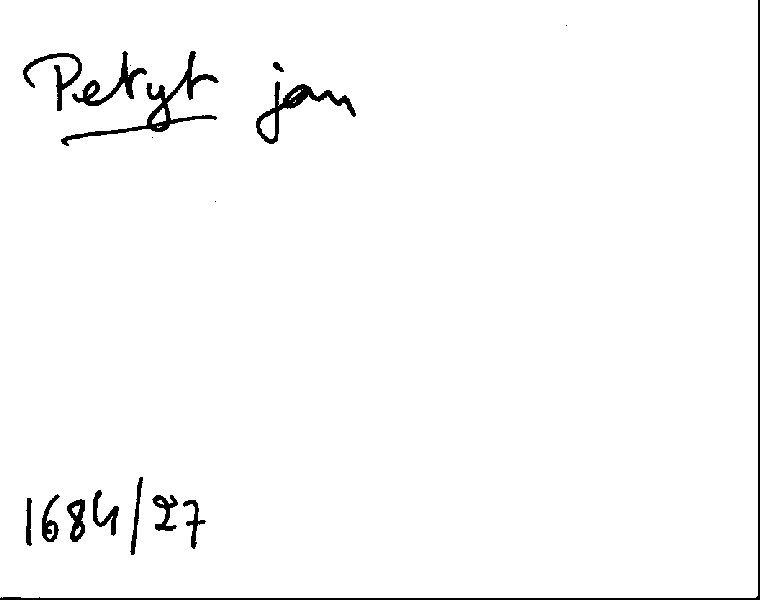 Petyt jan
1684/27